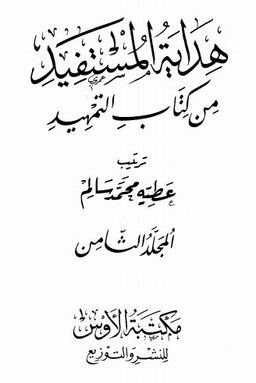 هداية المستفيد
من كتاب التمهيد
ترتيب
عطية محمد سالم
المجلد الثامن
مكتبة الأوس
للنشر والتوزيع